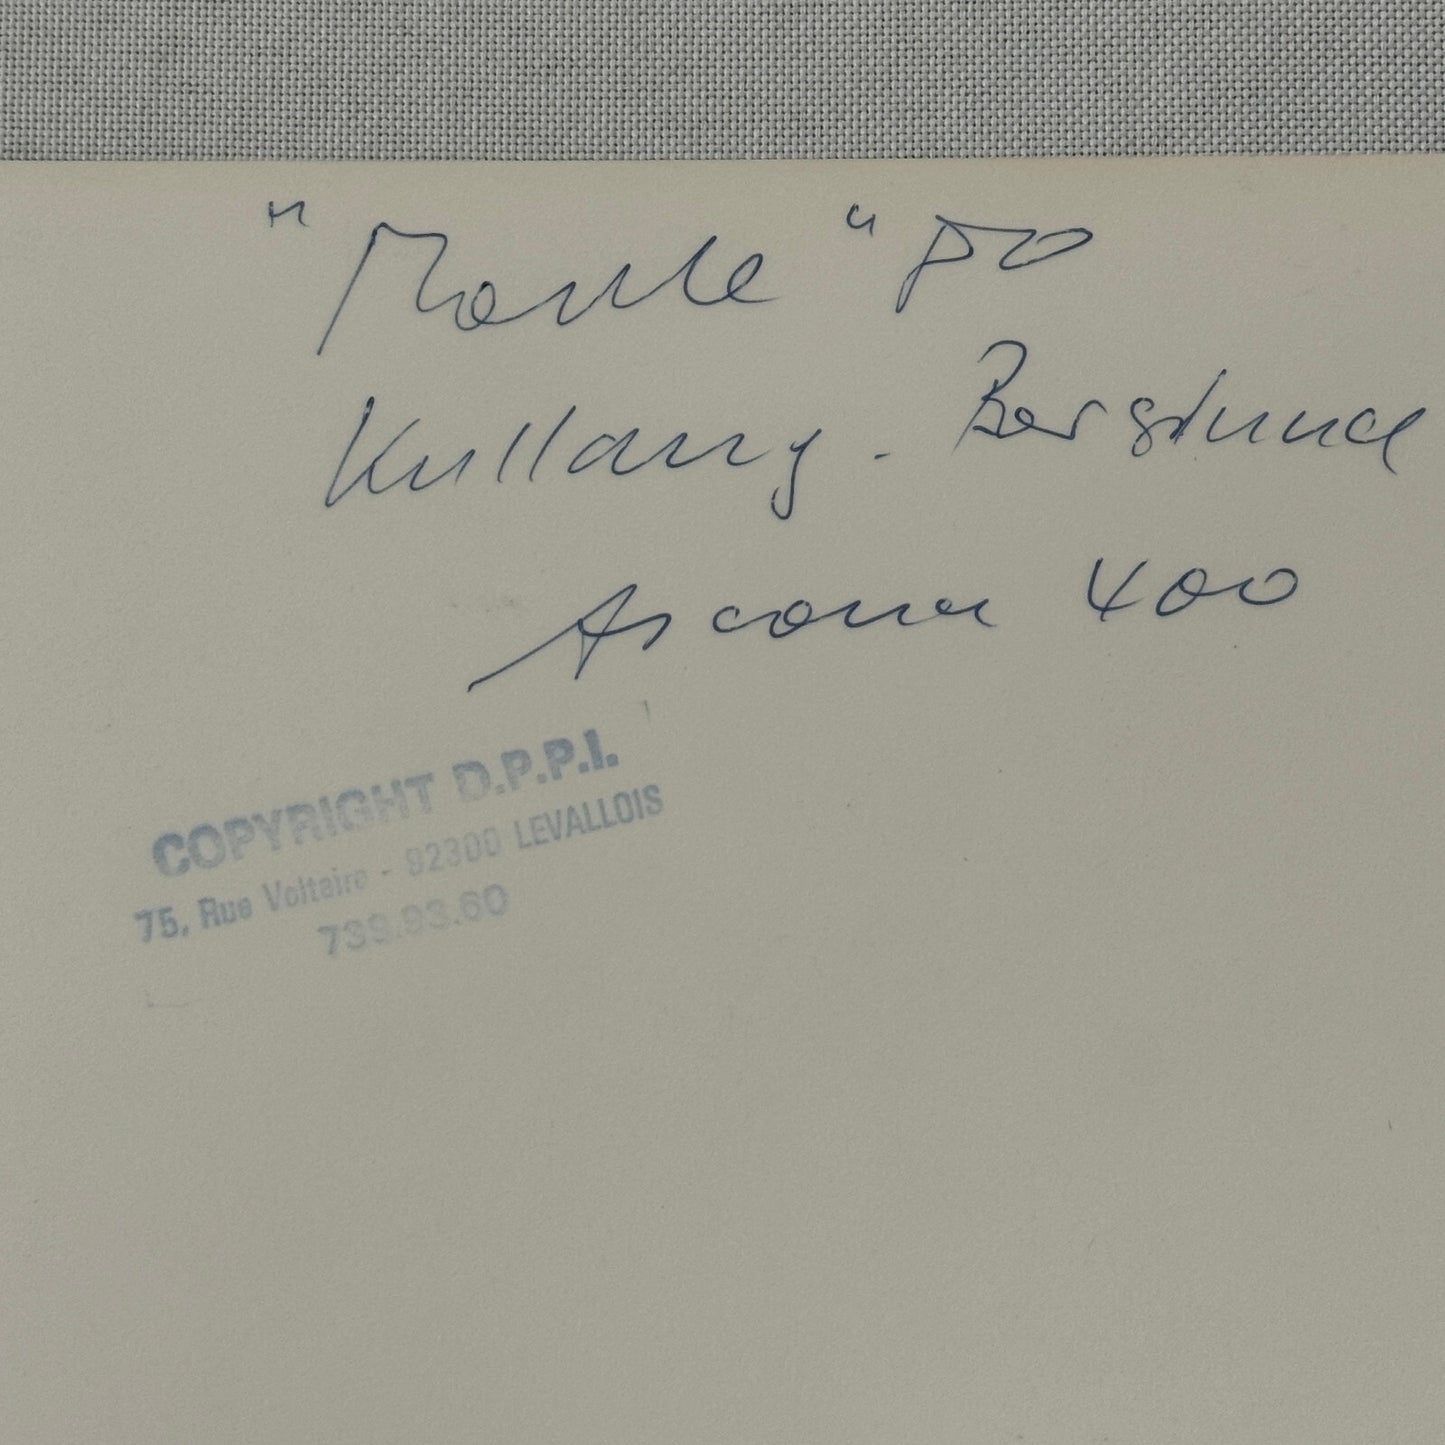 "Monte" 80
Kullang. Berglund
Ascona 400
COPYRIGHT D.P.P.I.
75, Rue Voltaire - 92300 LEVALLOIS
739.93.60